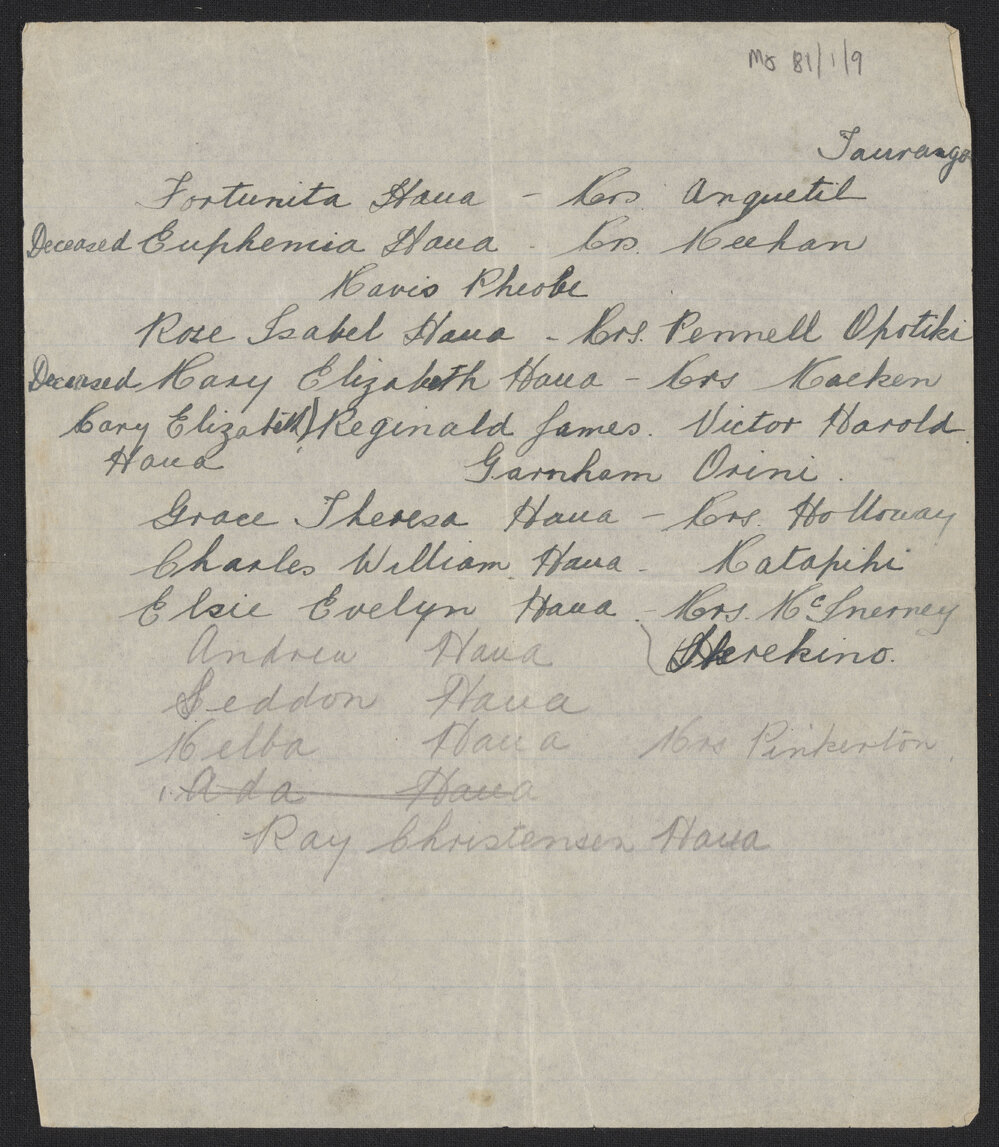 Ms 81/1/9
Tauranga
Fortunita Haua - Mrs. Anquetil
Deceased Euphemia Haua - Mrs. Meehan
Mavis Pheobe
Rose Isabel Haua - Mrs. Pennell Opotiki
Deceased Mary Elizabeth Haua - Mrs Macken
Mary Elizabeth) Reginald James. Victor Harold
Haua Garnham Orini.
Grace Theresa Haua - Mrs. Holloway
Charles William Haua - Matapihi
Elsie Evelyn Haua - Mrs. McInerney
Andrew Haua Herekino.
Seddon Haua
Melba Haua Mrs Pinkerton
Ada Haua
Ray Christensen Haua